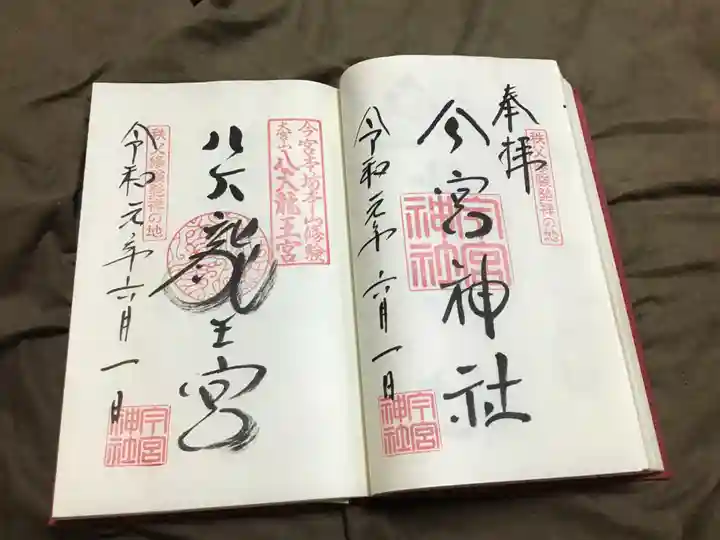 奉拝
秩父修験発祥の地
今宮神社
今宮神社
令和元年六月一日
今宮神社
今宮坊本山修験
大宮山
八大龍王宮
八大龍王宮
秩父修験発祥の地
令和元年六月一日
今宮神社